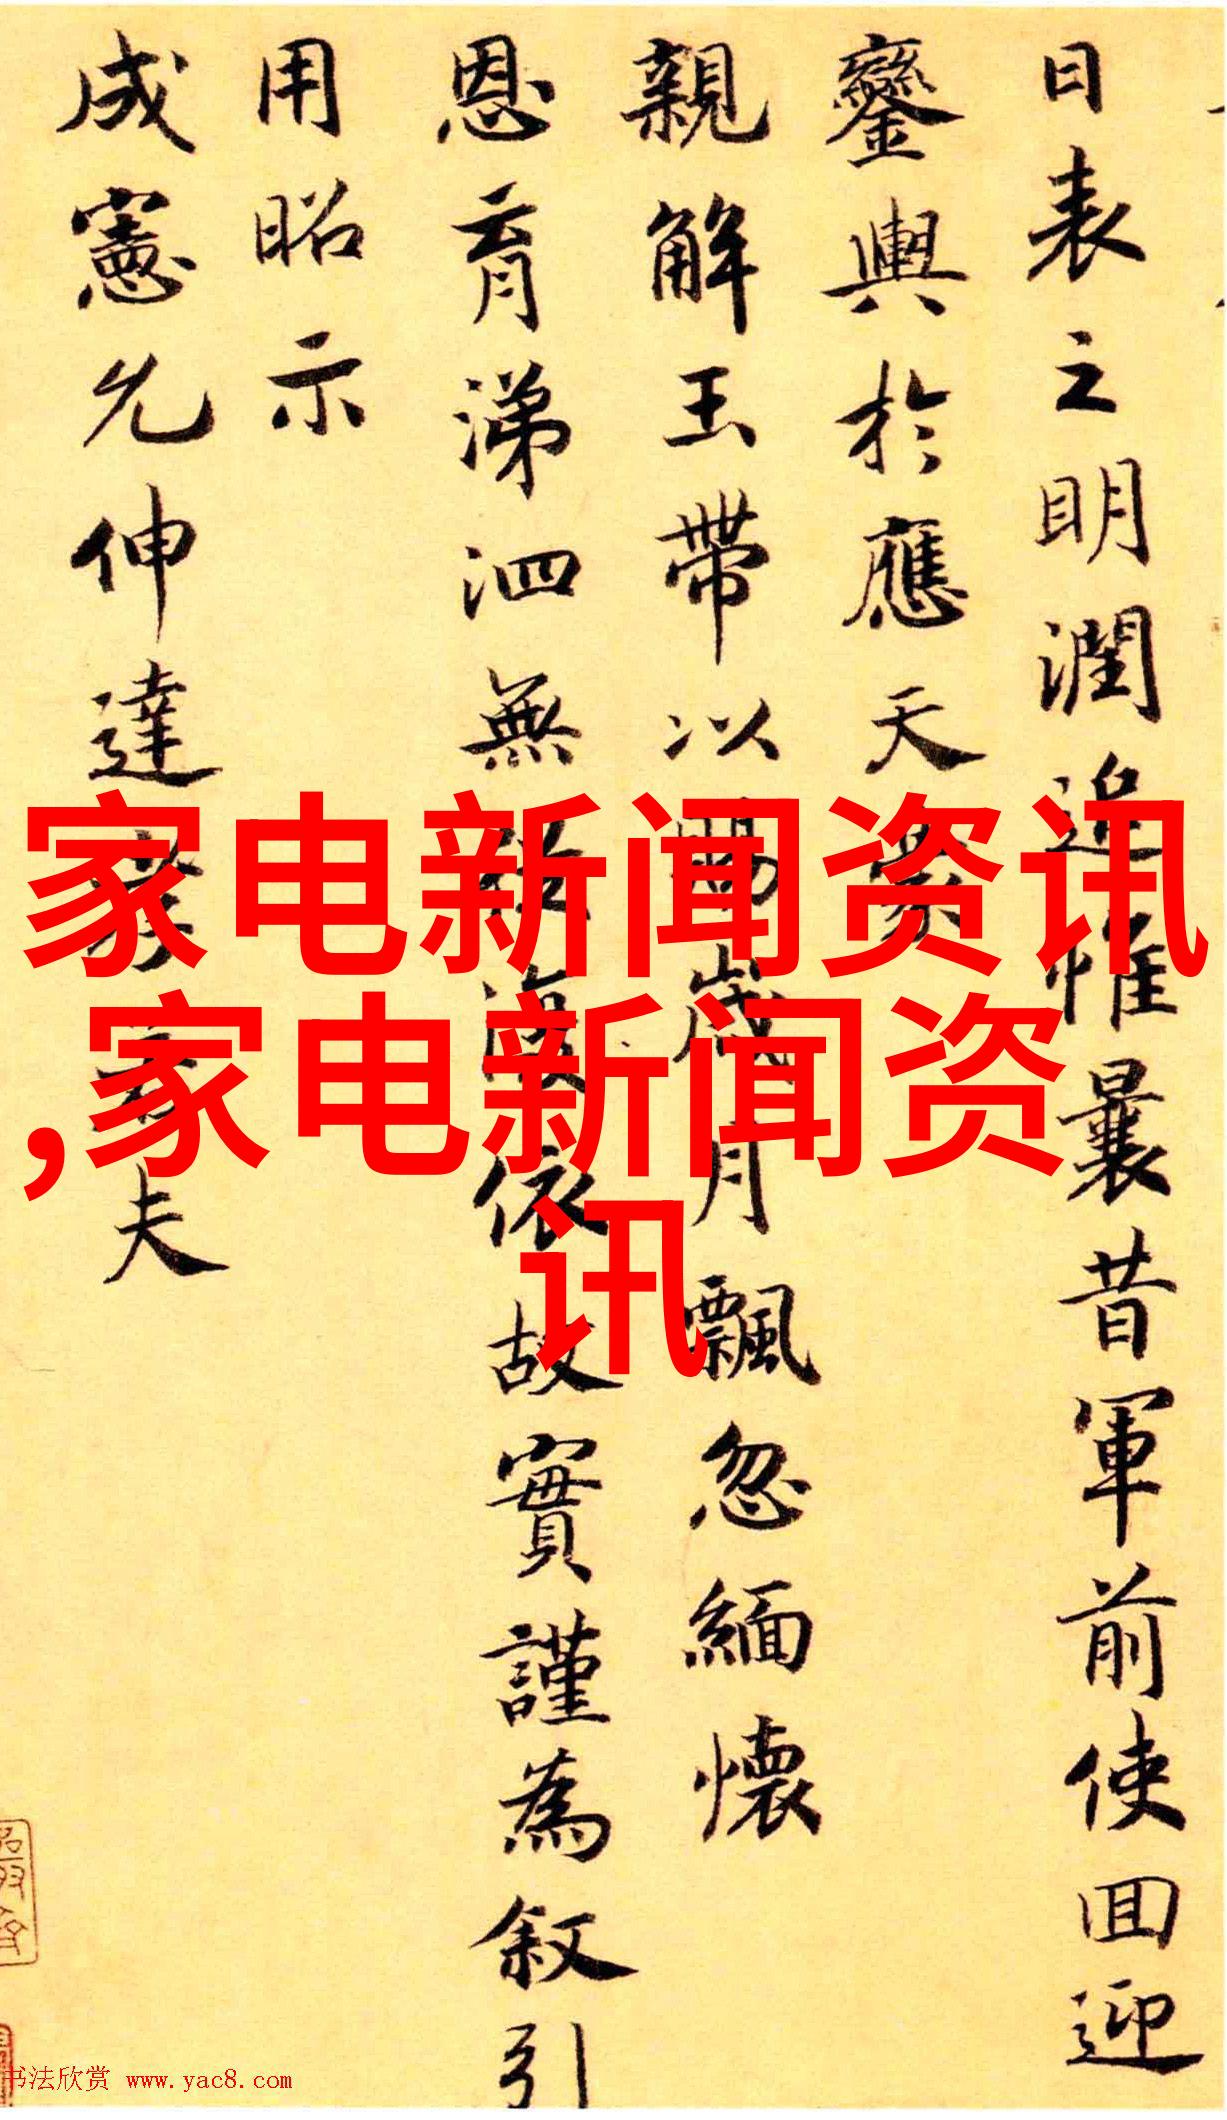 日表之明潤追惟曩昔軍前使回迎
鑾輿於應天
親解玉帶以賜歲月飄忽緬懷
恩育涕泗無從復依故實謹為叙引
用昭示
成憲允伸達孝 夫
家电新闻资讯
,家电新闻资
讯
书法欣赏 www.yac8.com